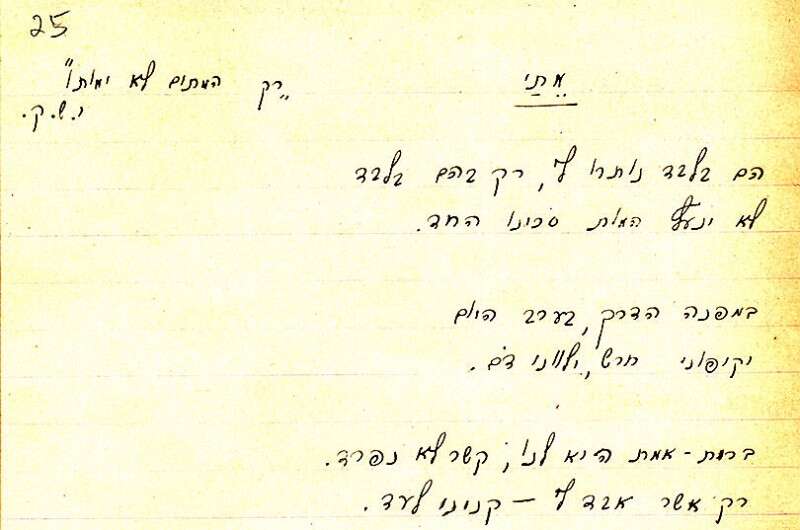 25
מֵתַי
„רק המתים לא ימותו"
י.ש.ק.
הם בלבד נותרו לי, רק בהם בלבד
לא ינעץ המות סכינו החד.
במפנה הדרך, בערב היום
יקיפוני חרש, ילווני דֹם.
ברית-אמת היא לנו, קשר לא נפרד.
רק אשר אבד לי – קניני לעד.